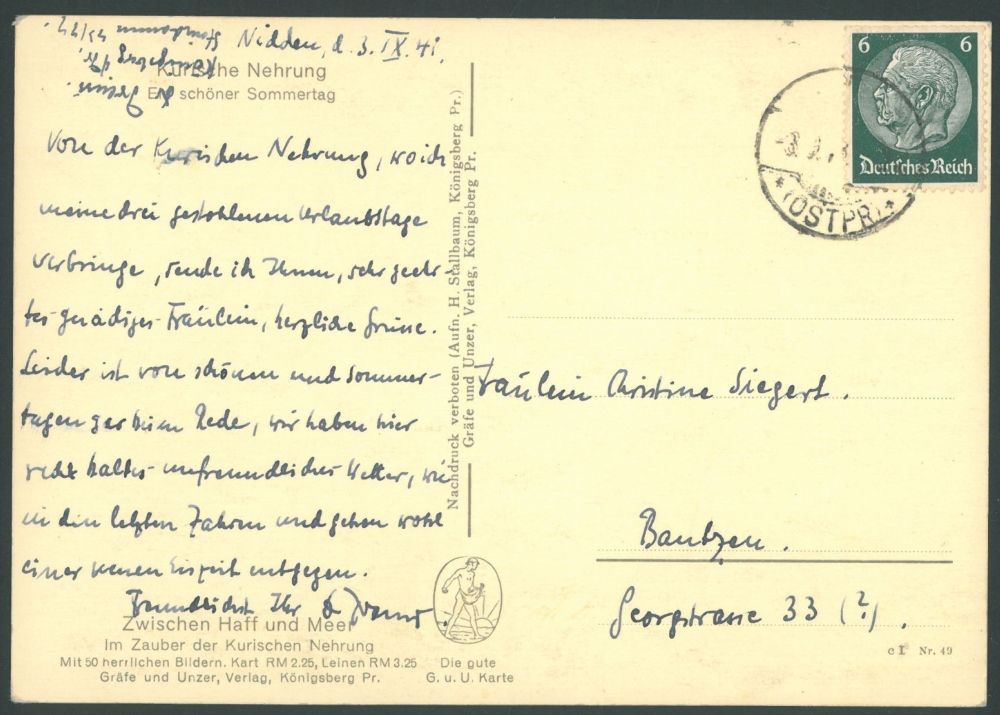 Nidden, d. 3. IX. 41.
Kurische Nehrung
Ein schöner Sommertag
Von der Kurischen Nehrung, wo ich
meine drei gestohlenen Urlaubstage
verbringe, sende ich Ihnen, sehr geehr-
tes gnädiges Fräulein, herzliche Grüsse.
Leider ist von schönen und Sommer-
tagen gar keine Rede, wir haben hier
recht kaltes unfreundliches Wetter, wie
in den letzten Jahren und gehen wohl
einer neuen Eiszeit entgegen.
Freundlichst Ihr
Zwischen Haff und Meer
Im Zauber der Kurischen Nehrung
Mit 50 herrlichen Bildern. Kart RM 2.25, Leinen RM 3.25
Gräfe und Unzer, Verlag, Königsberg Pr.
Die gute
G. u. U. Karte
Nachdruck verboten (Aufn. H. Stallbaum, Königsberg Pr.)
Gräfe und Unzer, Verlag, Königsberg Pr.
6 6
Deutsches Reich
(OSTPR)
Fräulein Christine Siegert.
Bautzen.
Georgstrasse 33 (?).
c I Nr. 49